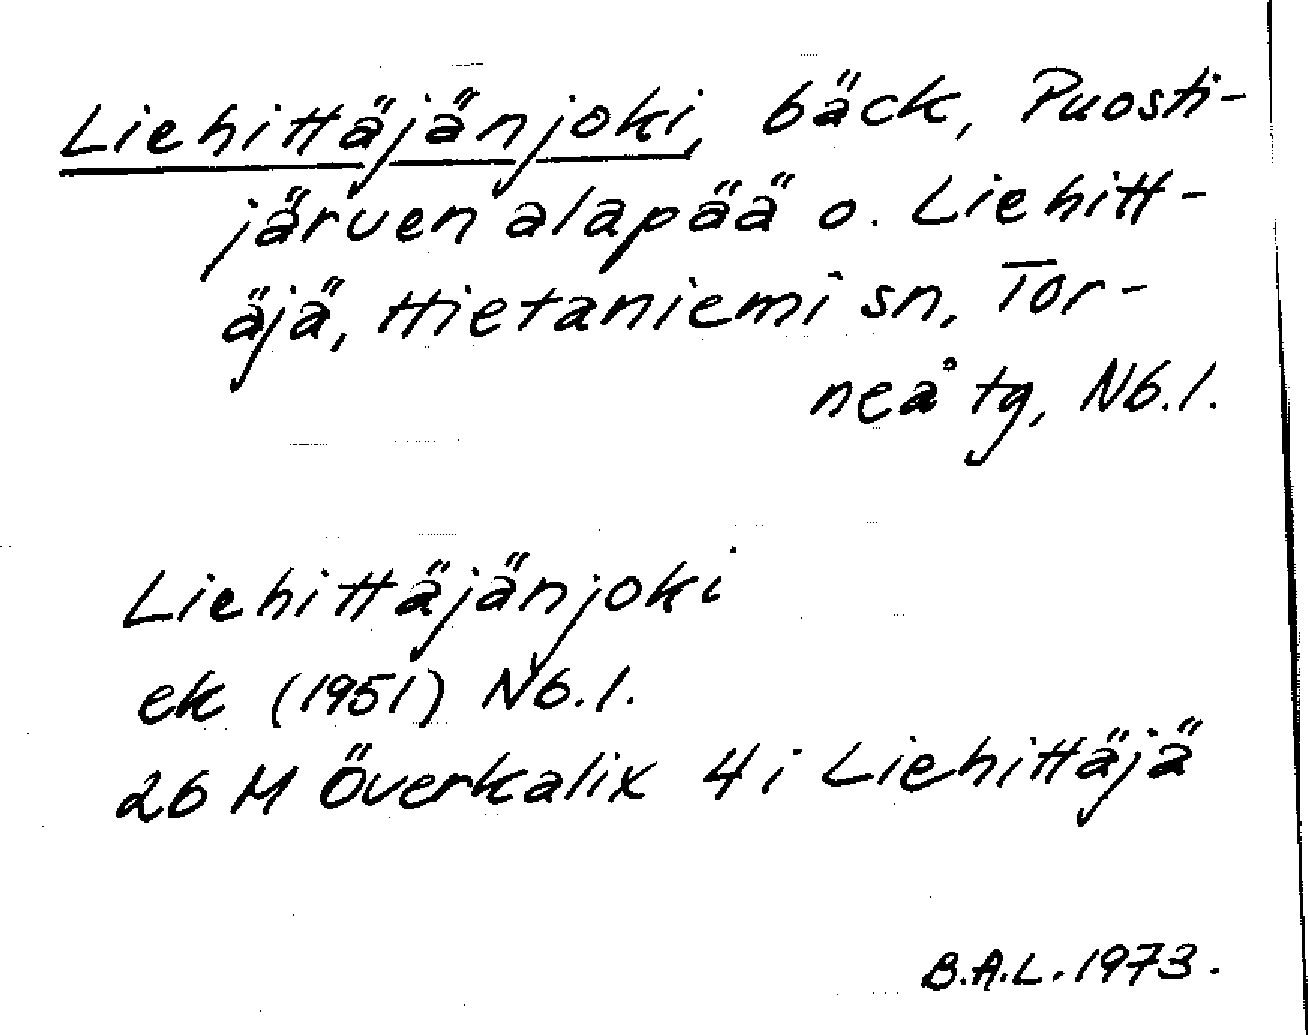 Liehittäjänjoki, bäck, Puosti-
järven alapää o. Liehitt-
äjä, Hietaniemi sn, Tor-
neå tg, Nb.l.
Liehittäjänjoki
ek (1951) Nb.l.
26 M Överkalix 4 i Liehittäjä
B.A.L. 1973.